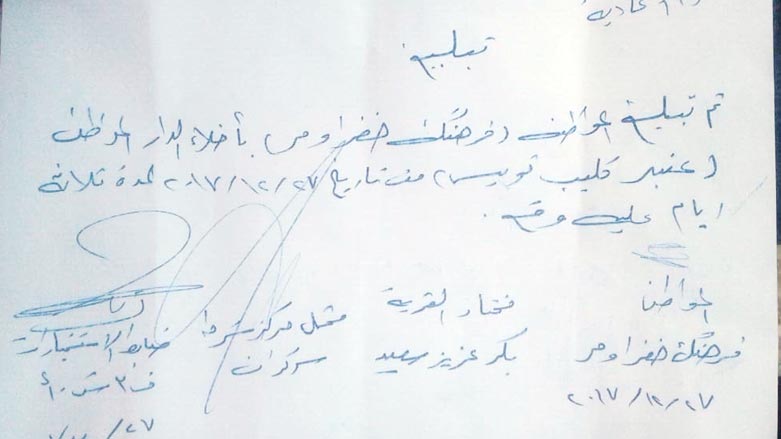 تبليغ
تم تبليغ المواطن (فرهنگ خضر اومر) بأخلاء الدار المواطن
من تاريخ ٢٠١٧/١٢/٢٧ لمدة ثلاثة
ايام عليه وقع .
المواطن
فرهنگ خضر اومر
٢٠١٧/١٢/٢٧
مختار القرية
بكر عزيز سعيد
ممثل مركز شرطة
سرگران
ضابط الاستخبارات